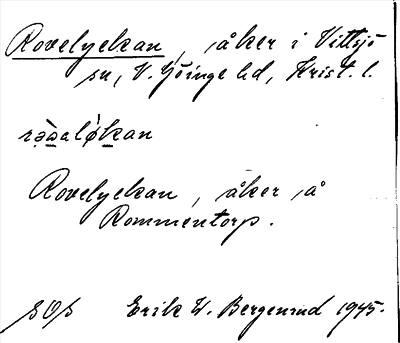 Rovelyckan, åker i Vittsjö
sn, V. Göinge hd, Krist. l.
Rovelyckan, åker å
Kommentorp.
SOS Erik W. Bergenrud 1945.